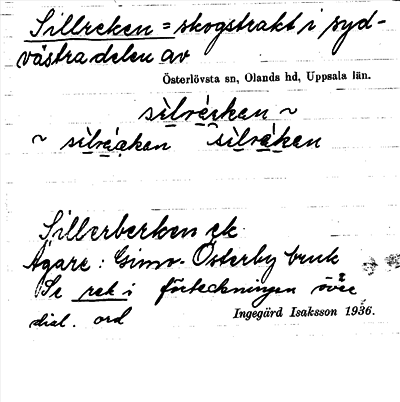 Sillreken = skogstrakt i syd-
västra delen av
Österlövsta sn, Olands hd, Uppsala län.
silrǽkan ~
~ silrǽkan silrákan
Sillerberken sk.
Ägare: Gimo-Österby bruk
Se rek i förteckningen över
dial. ord
Ingegärd Isaksson 1936.